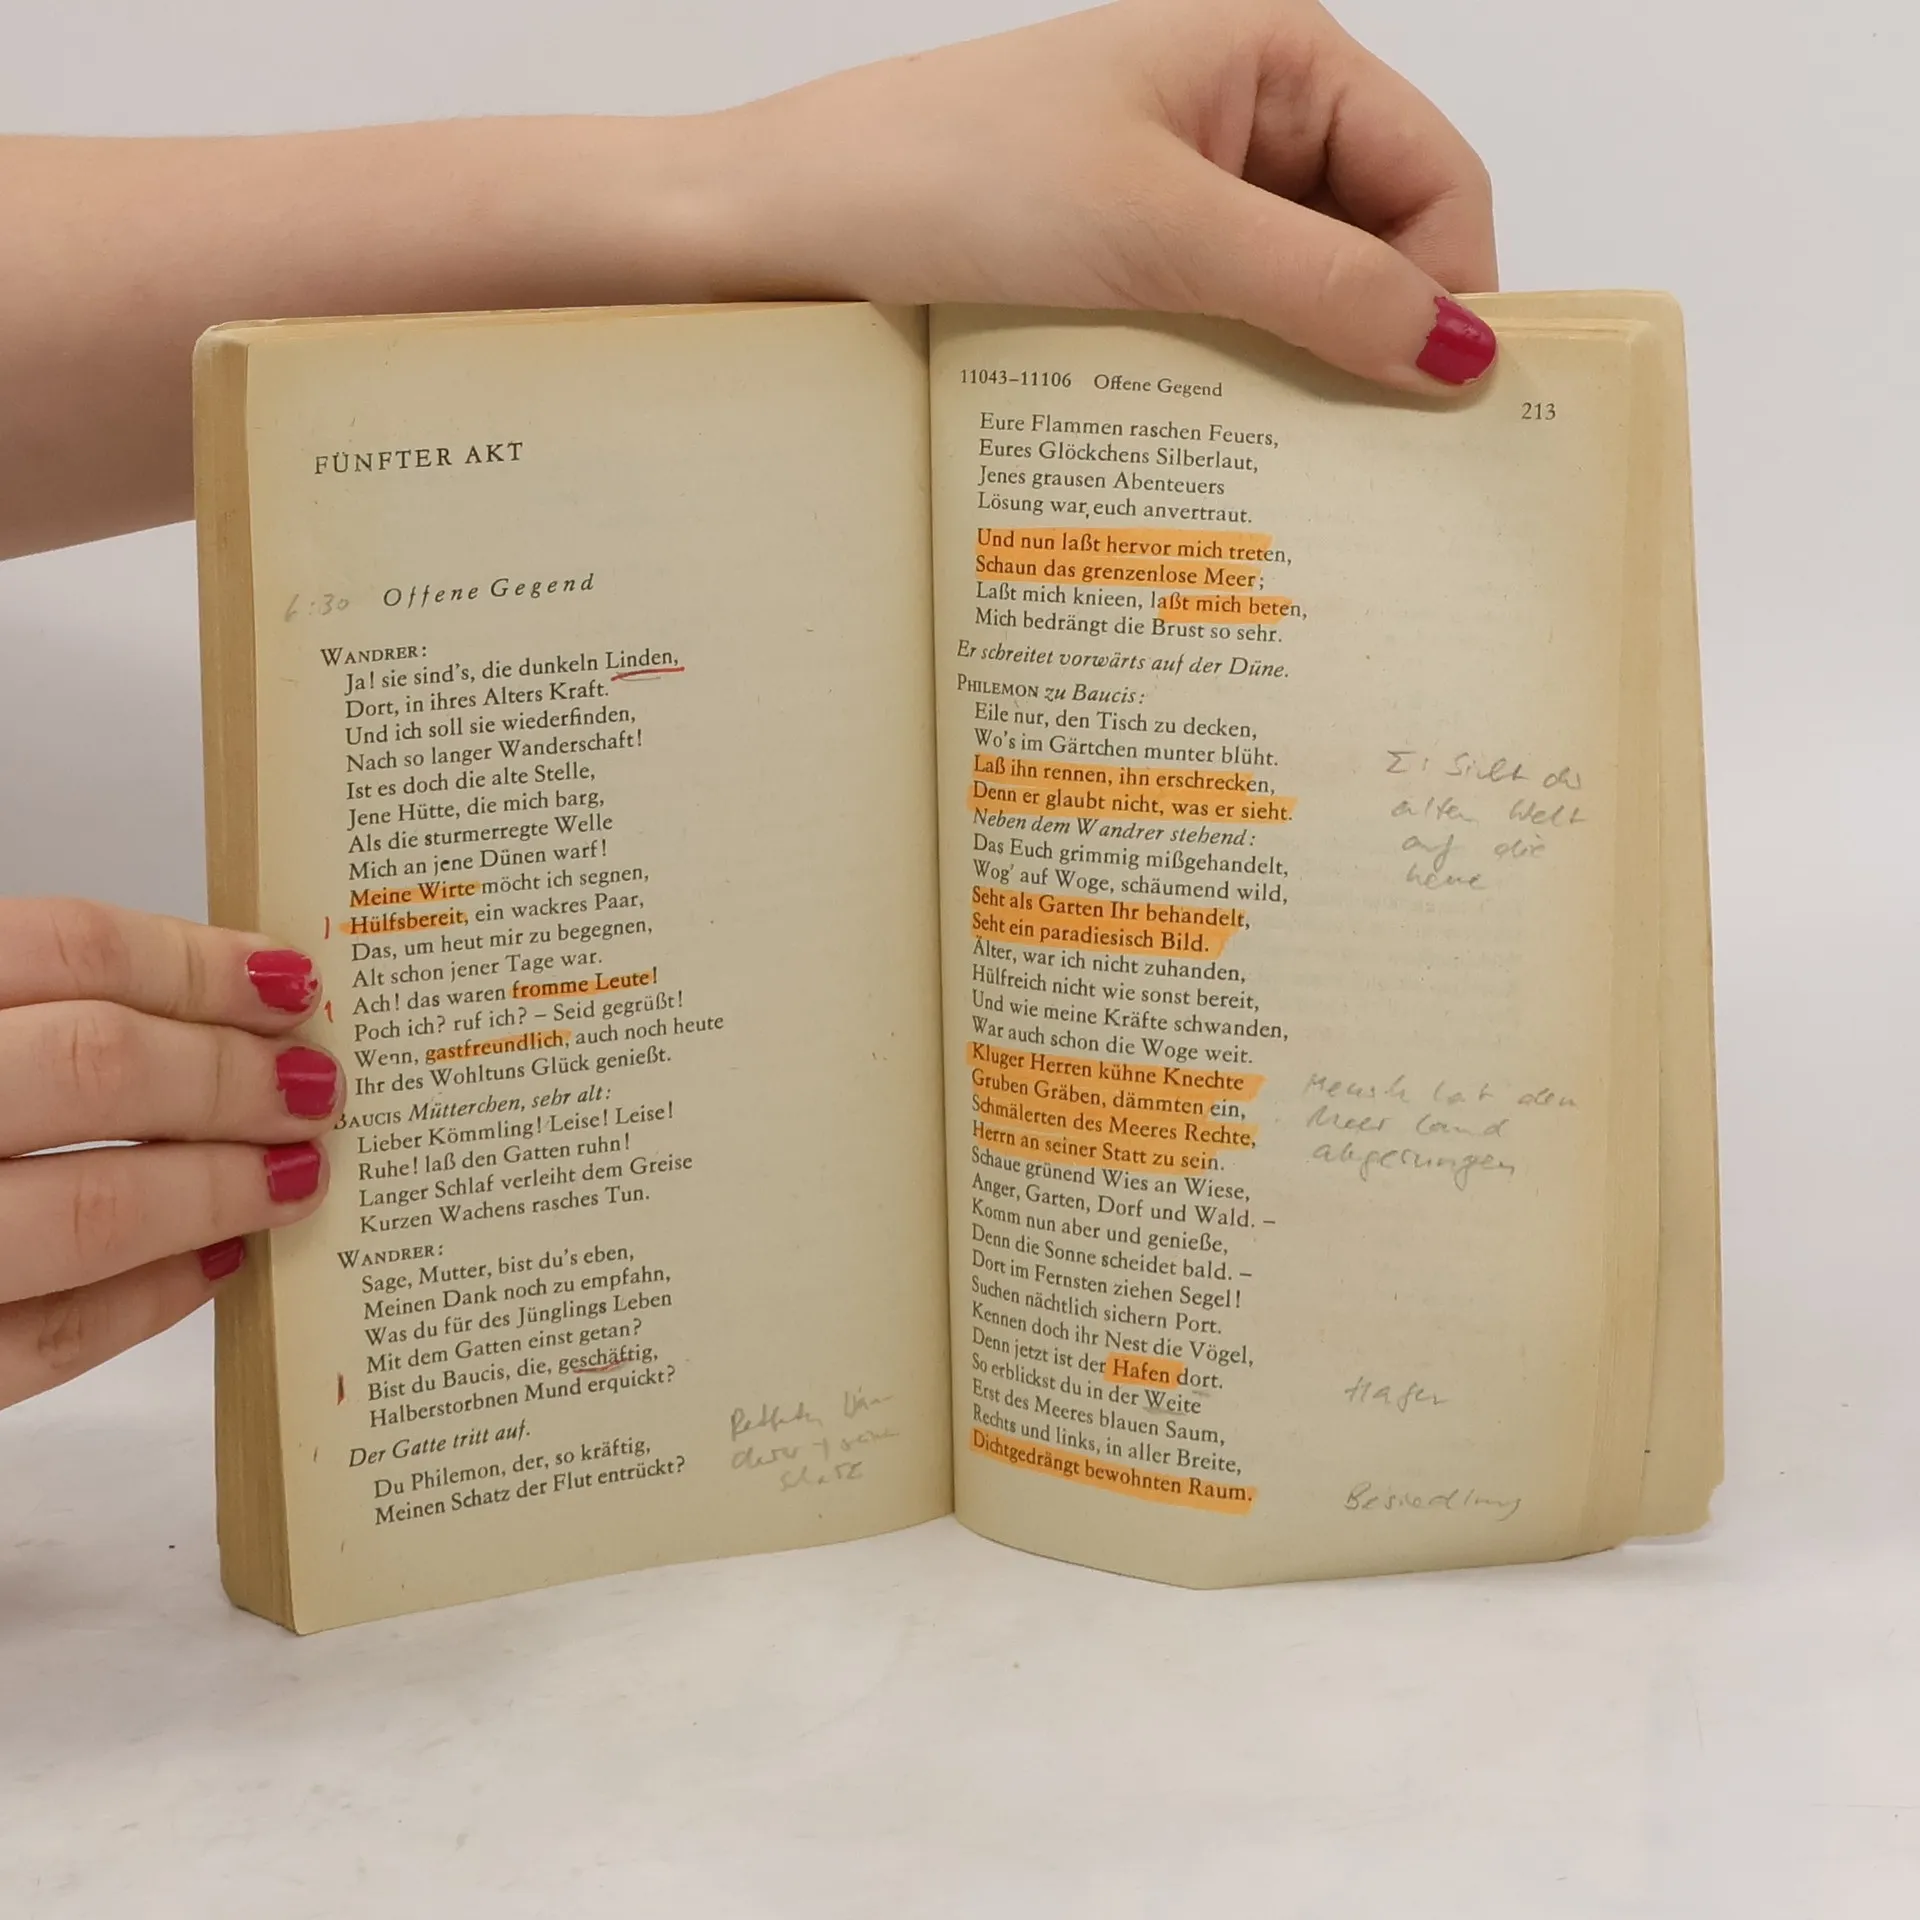 FÜNFTER AKT
6:30 Offene Gegend
WANDRER:
Ja! sie sind's, die dunkeln Linden,
Dort, in ihres Alters Kraft.
Und ich soll sie wiederfinden,
Nach so langer Wanderschaft!
Ist es doch die alte Stelle,
Jene Hütte, die mich barg,
Als die sturmerregte Welle
Mich an jene Dünen warf!
Meine Wirte möcht ich segnen,
Hülfsbereit, ein wackres Paar,
Das, um heut mir zu begegnen,
Alt schon jener Tage war.
Ach! das waren fromme Leute!
Poch ich? ruf ich? – Seid gegrüßt!
Wenn, gastfreundlich, auch noch heute
Ihr des Wohltuns Glück genießt.
BAUCIS Mütterchen, sehr alt:
Lieber Kömmling! Leise! Leise!
Ruhe! laß den Gatten ruhn!
Langer Schlaf verleiht dem Greise
Kurzen Wachens rasches Tun.
WANDRER:
Sage, Mutter, bist du's eben,
Meinen Dank noch zu empfahn,
Was du für des Jünglings Leben
Mit dem Gatten einst getan?
Bist du Baucis, die, geschäftig,
Halberstorbnen Mund erquickt?
Der Gatte tritt auf.
Du Philemon, der, so kräftig,
Meinen Schatz der Flut entrückt?
Schatz
11043–11106 Offene Gegend
213
Eure Flammen raschen Feuers,
Eures Glöckchens Silberlaut,
Jenes grausen Abenteuers
Lösung war euch anvertraut.
Und nun laßt hervor mich treten,
Schaun das grenzenlose Meer;
Laßt mich knieen, laßt mich beten,
Mich bedrängt die Brust so sehr.
Er schreitet vorwärts auf der Düne.
PHILEMON zu Baucis:
Eile nur, den Tisch zu decken,
Wo's im Gärtchen munter blüht.
Laß ihn rennen, ihn erschrecken,
Denn er glaubt nicht, was er sieht.
Neben dem Wandrer stehend:
Das Euch grimmig mißgehandelt,
Wog' auf Woge, schäumend wild,
Seht als Garten Ihr behandelt,
Seht ein paradiesisch Bild.
Älter, war ich nicht zuhanden,
Hülfreich nicht wie sonst bereit,
Und wie meine Kräfte schwanden,
War auch schon die Woge weit.
Kluger Herren kühne Knechte
Gruben Gräben, dämmten ein,
Schmälerten des Meeres Rechte,
Herrn an seiner Statt zu sein.
Schaue grünend Wies an Wiese,
Anger, Garten, Dorf und Wald. –
Komm nun aber und genieße,
Denn die Sonne scheidet bald. –
Dort im Fernsten ziehen Segel!
Suchen nächtlich sichern Port.
Kennen doch ihr Nest die Vögel,
Denn jetzt ist der Hafen dort.
So erblickst du in der Weite
Erst des Meeres blauen Saum,
Rechts und links, in aller Breite,
Dichtgedrängt bewohnten Raum.
Σ: Sicht der
alten Welt
auf die
neue
Mensch hat dem
Meer Land
abgerungen
Hafen
Besiedlung